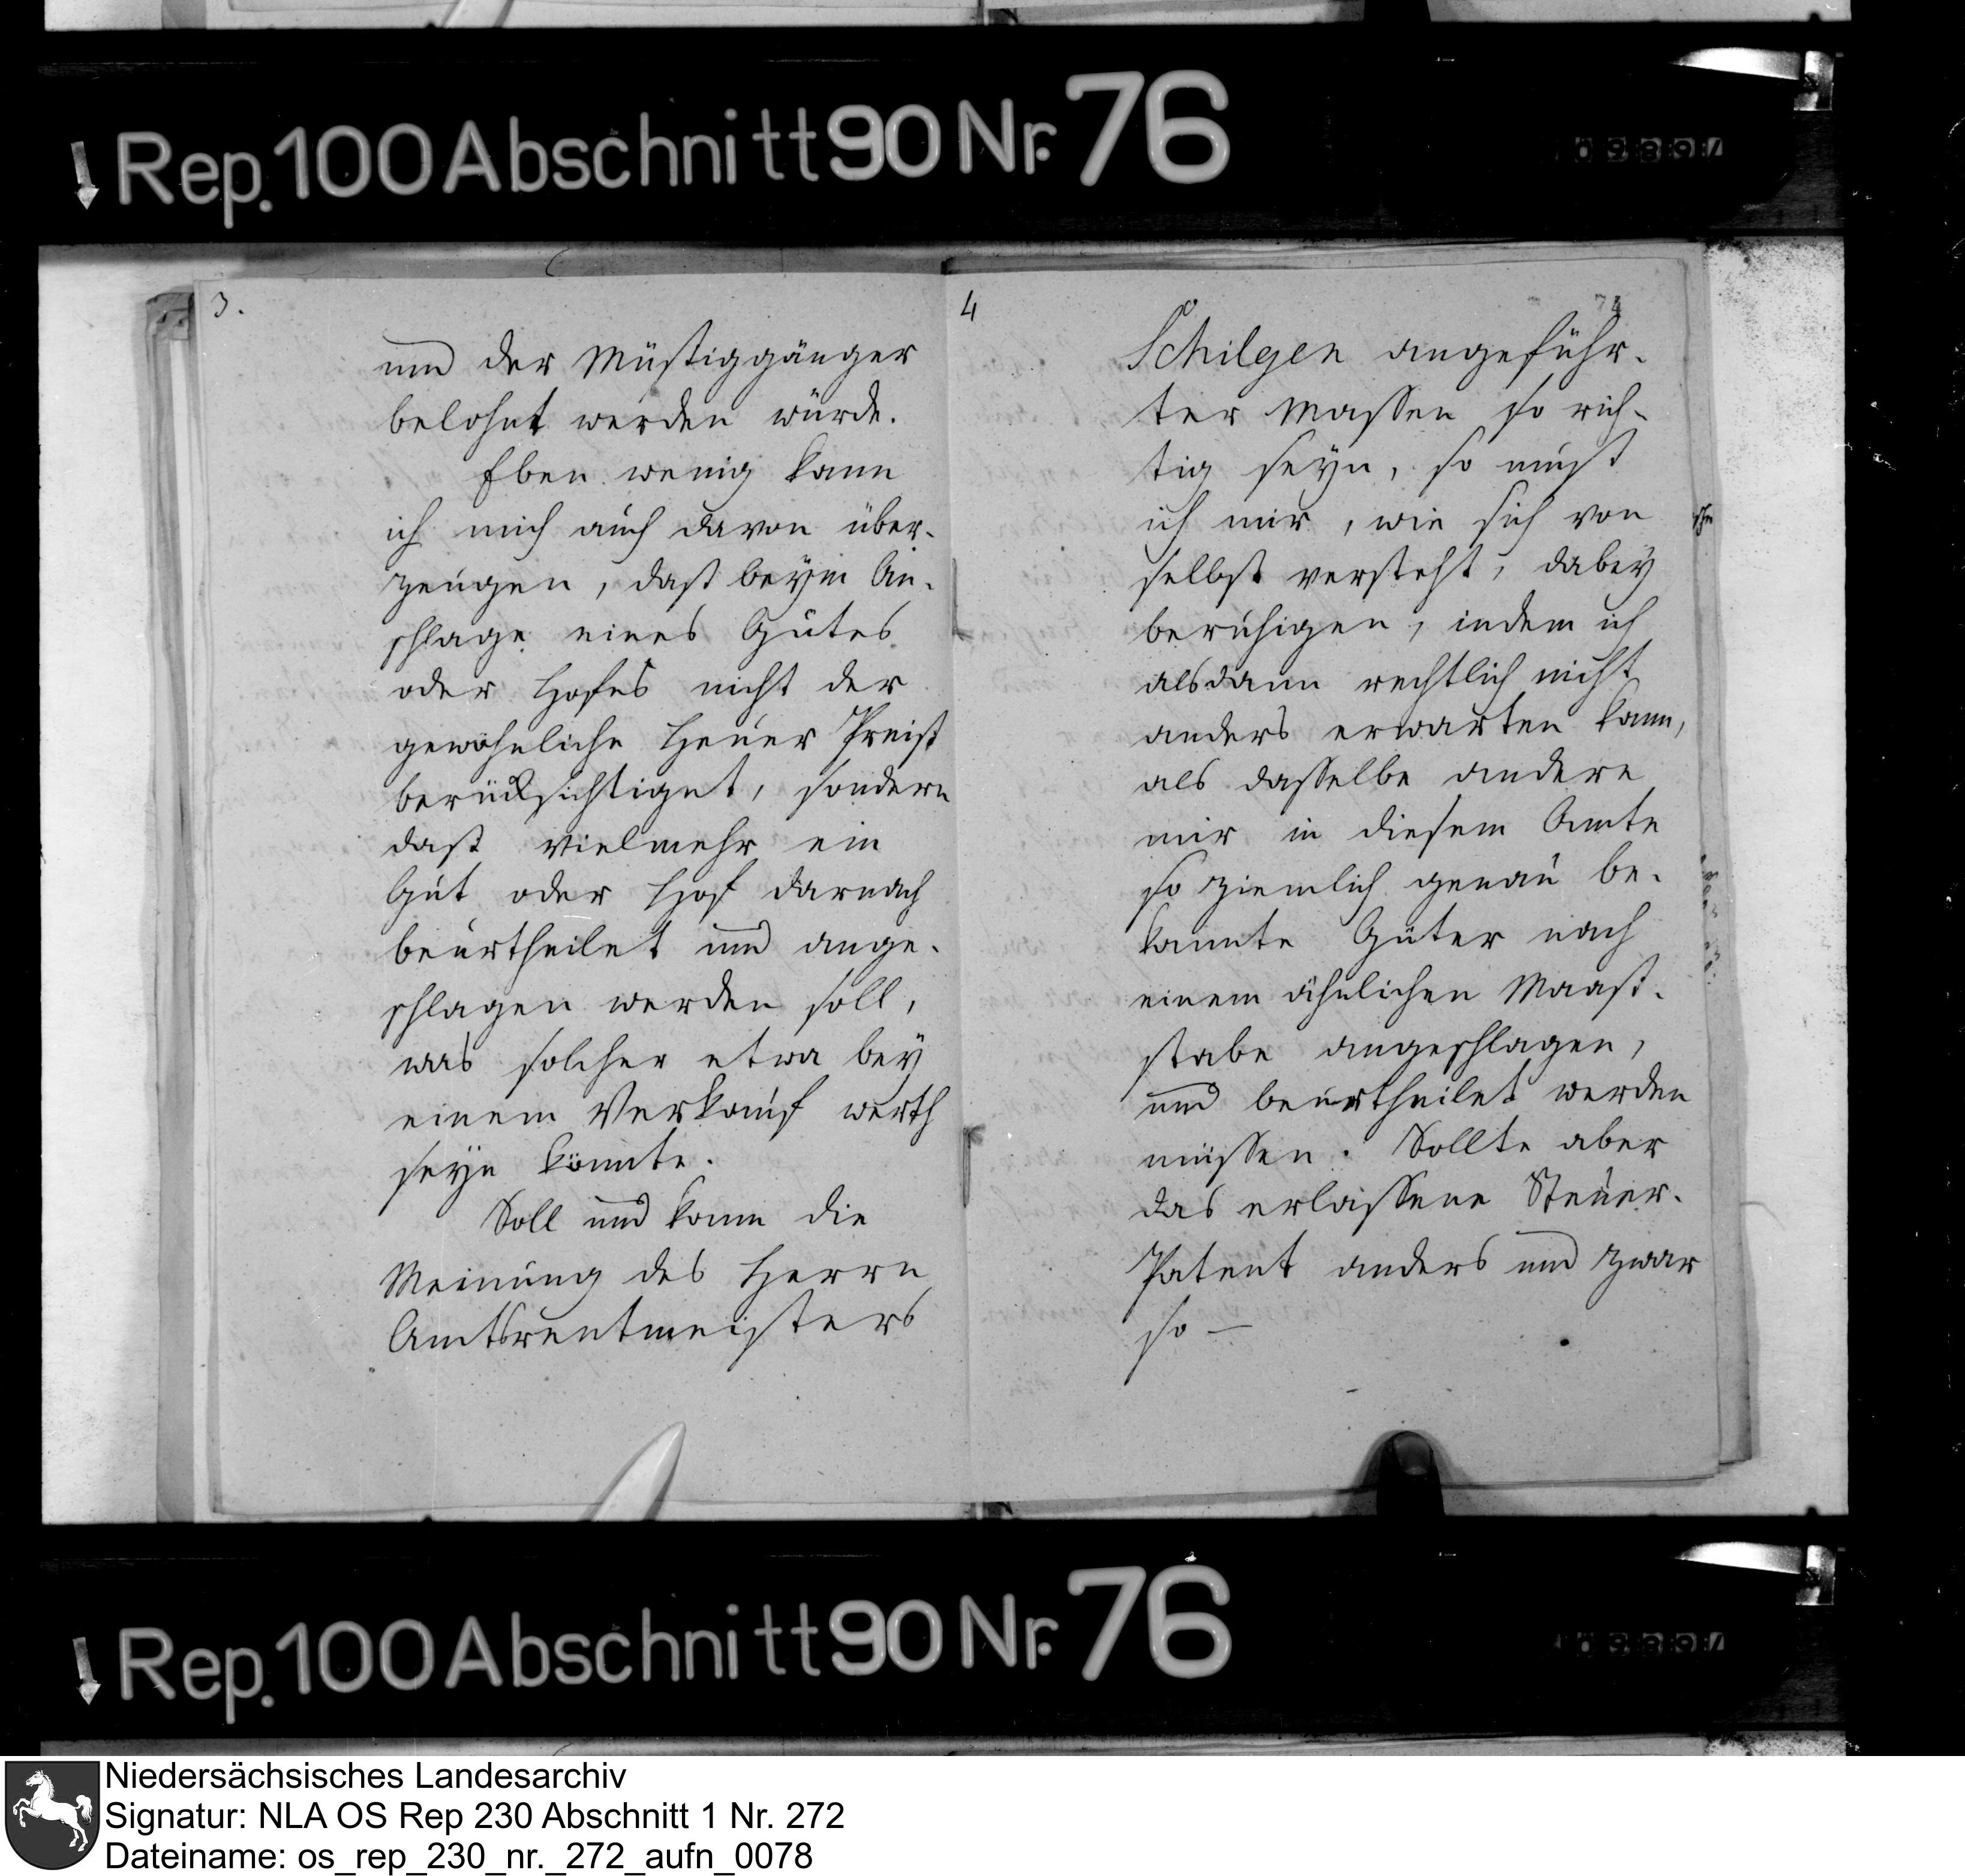 Rep. 100 Abschnitt 90 Nr. 76
3.
und der Müßiggänger
belohnt werden würde.
Eben wenig kann
ich mich auch davon über-
zeugen, daß beym An-
schlage eines Gutes
oder Hofes nicht der
gewöhnliche Heuer Preiß
berücksichtiget, sondern
daß vielmehr ein
Gut oder Hof darnach
beurtheilet und ange-
schlagen werden soll,
was solcher etwa bey
einem Verkauf werth
seyn könnte.
Soll und kann die
Meinung des Herrn
Amtsrentmeisters
4
74
Schilgen angeführ-
ter Massen so rich-
tig seyn, so muß
ich mir, wie sich von
selbst versteht, dabey
beruhigen, indem ich
alsdann rechtlich nicht
anders erwarten kann,
als dasselbe andere
mir in diesem Amte
so ziemlich genau be-
kannte Güter nach
einem ähnlichen Maaß-
stabe angeschlagen,
und beurtheilet werden
müssen. Sollte aber
das erlassene Steuer-
Patent anders und zwar
so —
Rep. 100 Abschnitt 90 Nr. 76
Niedersächsisches Landesarchiv
Signatur: NLA OS Rep 230 Abschnitt 1 Nr. 272
Dateiname: os_rep_230_nr._272_aufn_0078